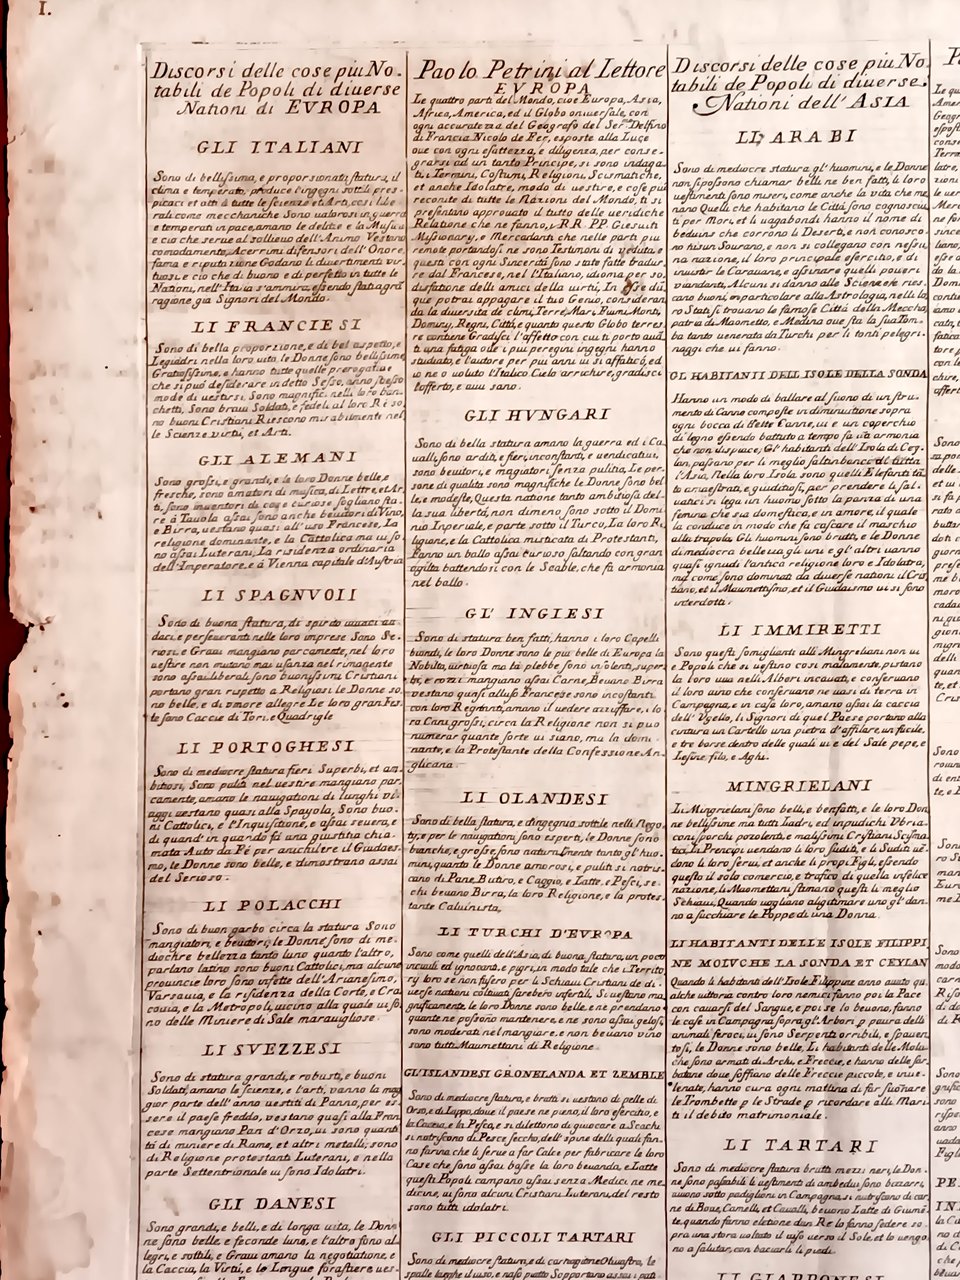 I.
Discorsi delle cose piu No-
tabili de Popoli di diuerse
Nationi di EVROPA
GLI ITALIANI
Sono di bellissima, e proporsionati statura, il
clima e temperato, produce l'ingegni sottili pres-
picaci et atti à tutte le scienze et Arti, cosi libe
rali come mecchaniche Sono ualorosi in guerra
e temperati in pace, amano le delitie e la Musica
e ciò che serue al sollieuo dell'Animo Vestano
comodamente, Acerrimi difensori dell'Onore
fama e riputazione Godano li diuertimenti vir
tuosi e ciò che di buono e di perfetto in tutte le
Nationi, nell'Italia s'ammira, essendo stati a gra
ragione già Signori del Mondo.
LI FRANCIESI
Sono di bella proporzione, e di bel aspetto, e
Legiadri nella loro uita le Donne sono bellissime
Gratiosissime, e hanno tutte quelle prerogatiue
che si può desiderare in detto Sesso, anno spesso
mode di uestirsi, Sono magnifici nelli loro ban-
chetti, Sono braui Soldati, e fedeli al loro Ré so
no buoni Cristiani Riescono mirabilmente nel
le Scienze virtù, et Arti.
GLI ALEMANI
Sono grossi, e grandi, e le loro Donne belle, e
fresche, sono amatori di musica, di Lettre, et Ar
ti, sono inuentori di cose curiose sogliano sta-
re à Tauola assai, sono anche beuitori di Vino,
e Birra, uestano quasi all'uso Francese, La
religione dominante, e la Cattolica ma ui so
no assai Luterani, La risidenza ordinaria
dell'Imperatore, e à Vienna capitale d'Austria
LI SPAGNVOII
Sodo di buona statura, di spirito uiuaci au
daci, e perseueranti nelle loro imprese Sono Se-
riosi e Graui mangiano parcamente, nel loro
uestire non mutano mai usanza nel rimagente
sono assai liberali sono buonissimi Cristiani
portano gran rispetto a Religiosi le Donne so
no belle, e di umore allegre Le loro gran Fes
te sono Caccie di Tori, e Quadrigle
LI PORTOGHESI
Sono di mediocre statura fieri Superbi, et am-
bitiosi, Sono politi nel uestire mangiano par-
camente, amano le nauigationi di lunghi ui-
aggi uestano quasi alla Spayola, Sono buo-
ni Cattolici, e l'Inquisitione, e assai seuera, e
di quand'in quando fà una giustitia chia-
mata Auto da Fé per anichilire il Giudaes-
mo, le Donne sono belle, e dimostrano assai
del Serioso.
LI POLACCHI
Sono di buon garbo circa la statura Sono
mangiatori, e beuitori, le Donne sono di me-
diochre bellezza tanto luno quanto l'altro,
parlano latino sono buoni Cattolici, ma alcune
prouincie loro sono infette dell'Arianesimo,
Varsauia, e la risidenza della Corte, e Cra
couia, e la Metropoli, uicino alla quale ui so
no delle Miniere di Sale marauigliose.
LI SVEZZESI
Sono di statura grandi, e robusti, e buoni
Soldati, amano le scienze, e l'arti, vanno la mag
gior parte dell'anno uestiti di Panno, per es-
sere il paese freddo, vestano quasi alla Fran
cese mangiano Pan d'Orzo, ui sono quanti
tà di miniere di Rame, et altri metalli, sono
di Religione protestanti Luterani, e nella
parte Settentrionale ui sono Idolatri.
GLI DANESI
Sono grandi, e belli, e di longa uita, le Don
ne sono belle, e feconde luno, e l'altro sono al-
legri, e sottili, e Graui amano la negotiatione, e
la Caccia, la Virtù, e le Lengue forastiere ues-
Paolo Petrini al Lettore
EVROPA
Le quattro parti del Mondo, cioe Europa, Asia,
Africa, America, ed il Globo oniuersale, con
ogni accuratezza del Geografo del Ser.mo Delfino
di Francia Nicolo de Fer, esposte alla Luce
oue con ogni esattezza, e diligenza, per conse-
grarsi ad un tanto Principe, si sono indaga
ti, i Termini, Costumi, Religioni, Scismatiche,
et anche Idolatre, modo di uestire, e cose più
recondite di tutte le Nazioni del Mondo, ti si
presentano approuato il tutto delle ueridiche
Relatione che ne fanno, i RR. PP. Giesuiti
Missionary, e Mercadanti che nelle parti più
remote portandosi ne sono Testimoni di veduta, e
questi con ogni Sincerità sono state fatte tradur
re dal Francese, nel l'Italiano, idioma per so
disfatione delli amici della uirtù, In esse dun
que potrai appagare il tuo Genio, consideran
do la diuersità de climi, Terre, Mari, Fiumi, Monti,
Dominy, Regni, Città, e quanto questo Globo terres
re contiene Gradisci l'affetto con cui ti porto auan
ti una fatiga oue i più peregrini ingegni hanno
studiato, e l'autore per più anni ui si affaticò, ed
io ne o uoluto l'Italico Cielo arrichire, gradisci
l'offerto, e uiui sano.
GLI HVNGARI
Sono di bella statura amano la guerra ed i Ca
ualli, sono arditi, e fieri, inconstanti, e uendicatiui,
sono beuitori, e magiatori senza pulitia, Le per-
sone di qualità sono magnifiche le Donne sono bel
le, e modeste, Questa natione tanto ambitiosa del-
la sua libertà, non dimeno, sono sotto il Domi
nio Inperiale, e parte sotto il Turco, La loro Ri
ligione, e la Cattolica misticata di Protestanti,
Fanno un ballo assai curioso saltando con gran
agilità battendosi con le Sciable, che fà armonia
nel ballo.
GL' INGIESI
Sono di statura ben fatti, hanno i loro Capelli
biondi, le loro Donne sono le più belle di Europa la
Nobiltà, uirtuosa ma la plebbe sono insolenti, super
bi, e rozzi mangiano assai Carne, Beuano Birra
vestano quasi all'uso Francese sono incostanti
con loro Regnanti, amano il uedere azzuffare, i lo
ro Cani grossi, circa la Religione non si può
numerar quante sorte ui siano, ma la domi
nante, e la Protestante della Confessione An-
glicana.
LI OLANDESI
Sono di bella statura, e d'ingegno sottile nelli Nego
tij, e per le nauigationi sono esperti, le Donne sono
bianche, e grosse, sono naturalmente tanto gl'huo-
mini, quanto le Donne amorosi, e puliti si notris-
cano di Pane, Butiro, e Caggio, e Latte, e Pesci, se-
chi beuano Birra, la loro Religione, e la protes-
tante Caluinista,
LI TURCHI D'EVROPA
Sono come quelli dell'Asia, di buona statura, un poco
inciuili ed ignoranti, e pigri, in modo tale che i Territo
ry loro se non fusero per li Schiaui Cristiani de di-
uerse nationi coltiuati sarebero infertili, Si uestano ma
gnificamente, le loro Donne sono belle, e ne prendano
quante ne possono mantenere, e ne sono assai gelosi,
sono moderati nel mangiare, e non beuano vino
sono tutti Maumettani di Religione
GL'ISLANDESI GRONELANDA ET ZEMBLE
Sono di mediocre statura, e brutti si uestano di pelle di
Orso, e di Luppo, doue il paese ne pieno, il loro esercitio, e
la Caccia, e la Pesca, e si dilettono di giuocare a Scachi
si notriscono di Pesce seccho, dell'spine delli quali fan-
no farina che li serue a far Calce per fabricare le loro
Case che sono assai basse la loro beuanda, e Latte
questi Popoli campano assai senza Medici ne me
dicine, ui sono alcuni Cristiani Luterani, del resto
sono tutti idolatri.
GLI PICCOLI TARTARI
Sono di mediocre statura, e di carnagione Oliuastra, le
spalle larghe il uiso, e naso piatto Sopportano assai i pati
Discorsi delle cose piu No
tabili de Popoli di diuerse
Nationi dell'ASIA
LI ARABI
Sono di mediocre statura gl'huomini, e le Donne
non si possono chiamar belli ne ben fatti, li loro
uestimenti sono miseri, come anche la vita che me
nano Quelli che habitano le Città sono cognosciu
ti per Mori, et li uagabondi hanno il nome di
beduins che corrono li Deserti, e non conosco-
no nisun Sourano, e non si collegano con nessu
na nazione, il loro principale esercitio, e di
inuistir le Carauane, e assinare quelli poueri
viandanti, Alcuni si danno alle Scienze e ries
cano buoni, in particolare alla Astrologia, nelli lo
ro Stati si trouano le famose Città della Meccha,
patria di Maometto, e Medina oue sta la sua Tom
ba tanto uenerata da Turchi per li tanti pelegri-
naggi che ui fanno.
GL HABITANTI DELL ISOLE DELLA SONDA
Hanno un modo di ballare al suono di un stru-
mento di Canne composte in diminuitione sopra
ogni bocca di dette Canne, ui e un coperchio
di legno essendo battuto a tempo fa un armonia
che non dispiace, Gl'habitanti dell'Isola di Cey
lan, passano per li meglio saltinbanco di tutta
l'Asia, Nella loro Isola sono quelli Elefanti tan
to amaestrati, e giuditiosi, per prendere li sal-
uatici si lega un huomo sotto la panza di una
femina che sia domestica, e in amore, il quale
la conduce in modo che fa cascare il maschio
alla trapola Gli huomini sono brutti, e le Donne
di mediocra bellezza gli uni e gl'altri uanno
quasi ignudi l'antica religione loro e Idolatra,
ma come sono dominati da diuerse nationi il Cris
tiano, et il Maumettismo, et il Giudaismo ui si sono
interdotti.
LI IMMIRETTI
Sono questi somiglianti alli Mingreliani non ui
e Popoli che si uestino cosi malamente, pistano
la loro uua nelli Albori incauati, e conseruano
il loro uino che conseruano ne uasi di terra in
Campagna, e in casa loro, amano assai la caccia
dell'Vgello, li Signori di quel Paese portano alla
cintura un Cartello una pietra d'affilare, un fucile,
e tre borse dentro delle quali ui e del Sale pepe, e
Lesine, filo, e Aghi.
MINGRIELANI
Li Mingrelani sono belli, e benfatti, e le loro Don
ne bellissime ma tutti Ladri, ed inpudichi Vbria-
coni sporchi pozolenti, e malissimi Cristiani Scisma
tici, Li Prencipi uendano li loro suditi, e li Suditi uen-
dono li loro serui, et anche li propi Figli, essendo
questo il solo comercio, e trafico di quella infelice
nazione, li Maomettani stimano questi li meglio
Schiaui, Quando uogliano aligitimare uno gl'dan-
no a succhiare le Poppe di una Donna.
LI HABITANTI DELLE ISOLE FILIPPI
NE MOLVCHE LA SONDA ET CEYLAN
Quando li habitanti dell'Isole Filippine anno auuto qu
alche uittora contro loro nemici fanno poi la Pace
con cauarsi del Sangue, e poi se lo beuono, fanno
le case in Campagna sopra gl'Arbori p paura delli
animali feroci, ui sono Serpenti orribili, e spauen-
tosi, le Donne sono belle, Li habitanti delle Molu-
che sono armati di Archi, e Freccie, e hanno delle Sar
batane doue soffiano delle Freccie piccole, e inue-
lenate, hanno cura ogni mattina di far suonare
le Trombette p le Strade p ricordare alli Mari-
ti il debito matrimoniale.
LI TARTARI
Sono di mediocre statura brutti mezzi neri, le Don-
ne sono passabili li uestimenti di ambedui sono bizzarri,
uiuono sotto padiglioni in Campagna, si nutriscano di car
ne di Boue, Camelli, et Caualli, beuono Latte di Giume-
te, quando fanno eletione d'un Re lo fanno sedere so-
pra una stora uoltato il uiso verso il Sole, et lo uengo
no a salutar, con baciarli li piedi.
LI GIAPPONESI